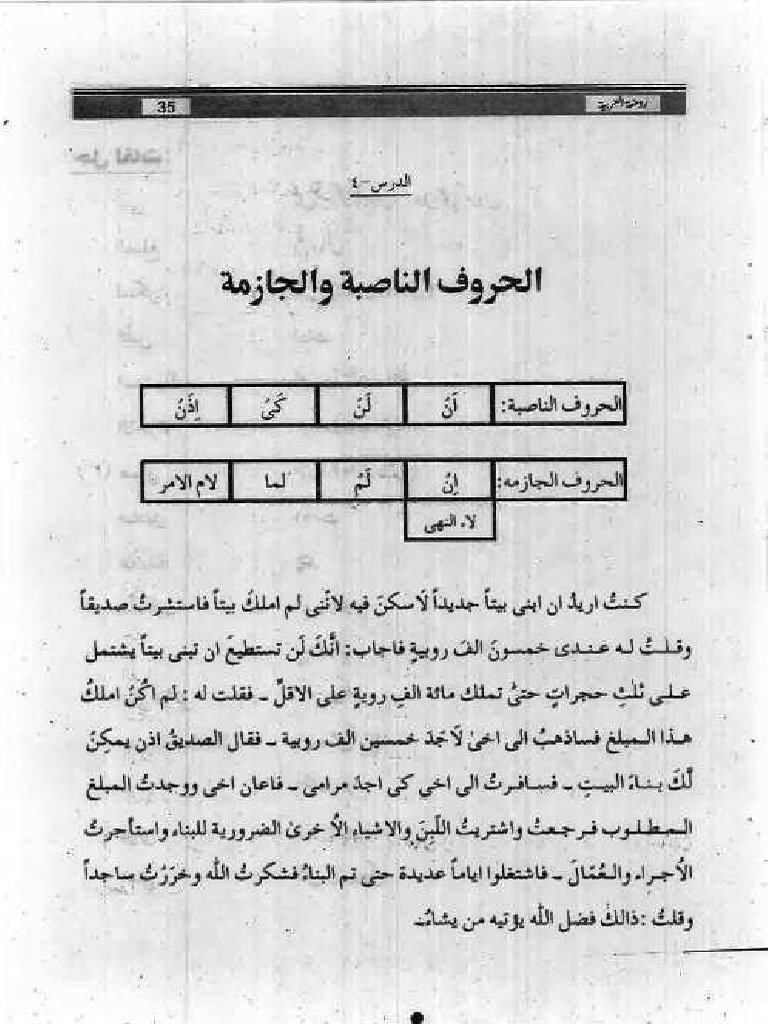 35
روضة العربية
الدرس-٤
الحروف الناصبة والجازمة
الحروف الناصبة: اَنْ لَنْ كَىْ اِذَنْ
الحروف الجازمه: اِنْ لَمْ لما لام الامر
لاء النهى
كنتُ اريدُ ان ابنى بيتاً جديداً لَاسكنَ فيه لانّنى لم املكْ بيتاً فاستشرتُ صديقاً
وقلتُ له عندى خمسونَ الفَ روبيةٍ فاجاب: اَنَّكَ لَن تستطيعَ ان تبنى بيتاً يشتمل
على ثلٰثِ حجراتٍ حتىّٰ تملك مائة الفِ روبةٍ على الاقلِّ ـ فقلت له : لم اكُنْ املكُ
هذا المبلغ فساذهبُ الى اخىْ لَاَجَدَ خمسين الف روبية ـ فقال الصديقُ اذن يمكِنَ
لَّكَ بناءَ البيتِ ـ فسافرتُ الى اخى كى اجدَ مرامى ـ فاعان اخى ووجدتُ المبلغ
المطلوب فرجعتُ واشتريتُ اللَّبِنَ والاشياءِ الاُخرىٰ الضرورية للبناء واستأجرتُ
الاُجراء والعُمّالَ ـ فاشتغلوا اياماً عديدة حتى تم البناءُ فشكرتُ الله وخرَرْتُ ساجداً
وقلتُ :ذالكَ فضل الله يؤتيه من يشاءُ۔